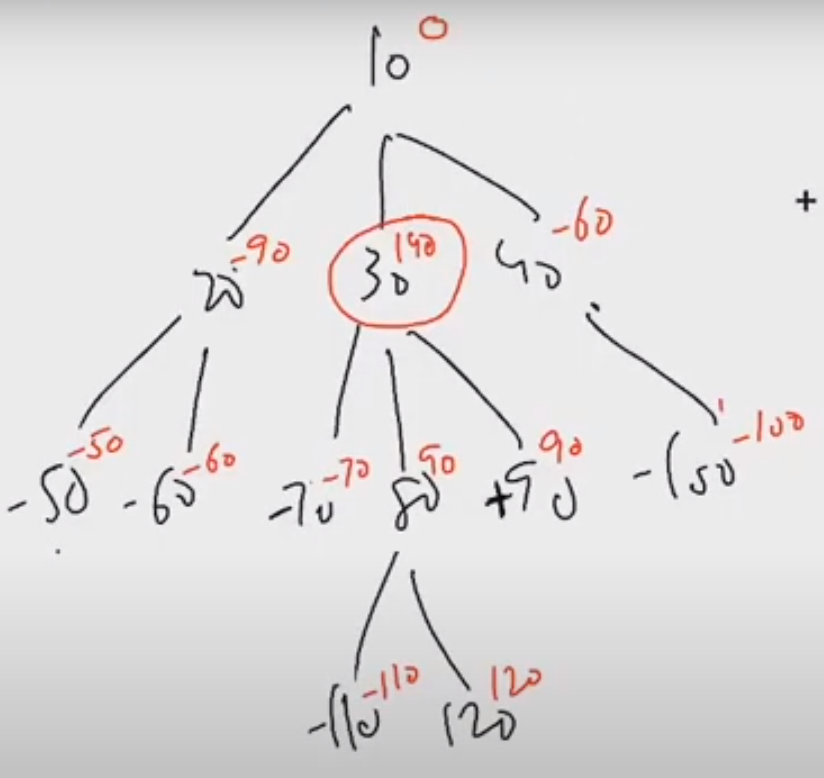 10 0
20 -90 30 140 40 -60
-50 -50 -60 -60 -70 -70 80 90 +90 90 -100
-110 -110 120 120